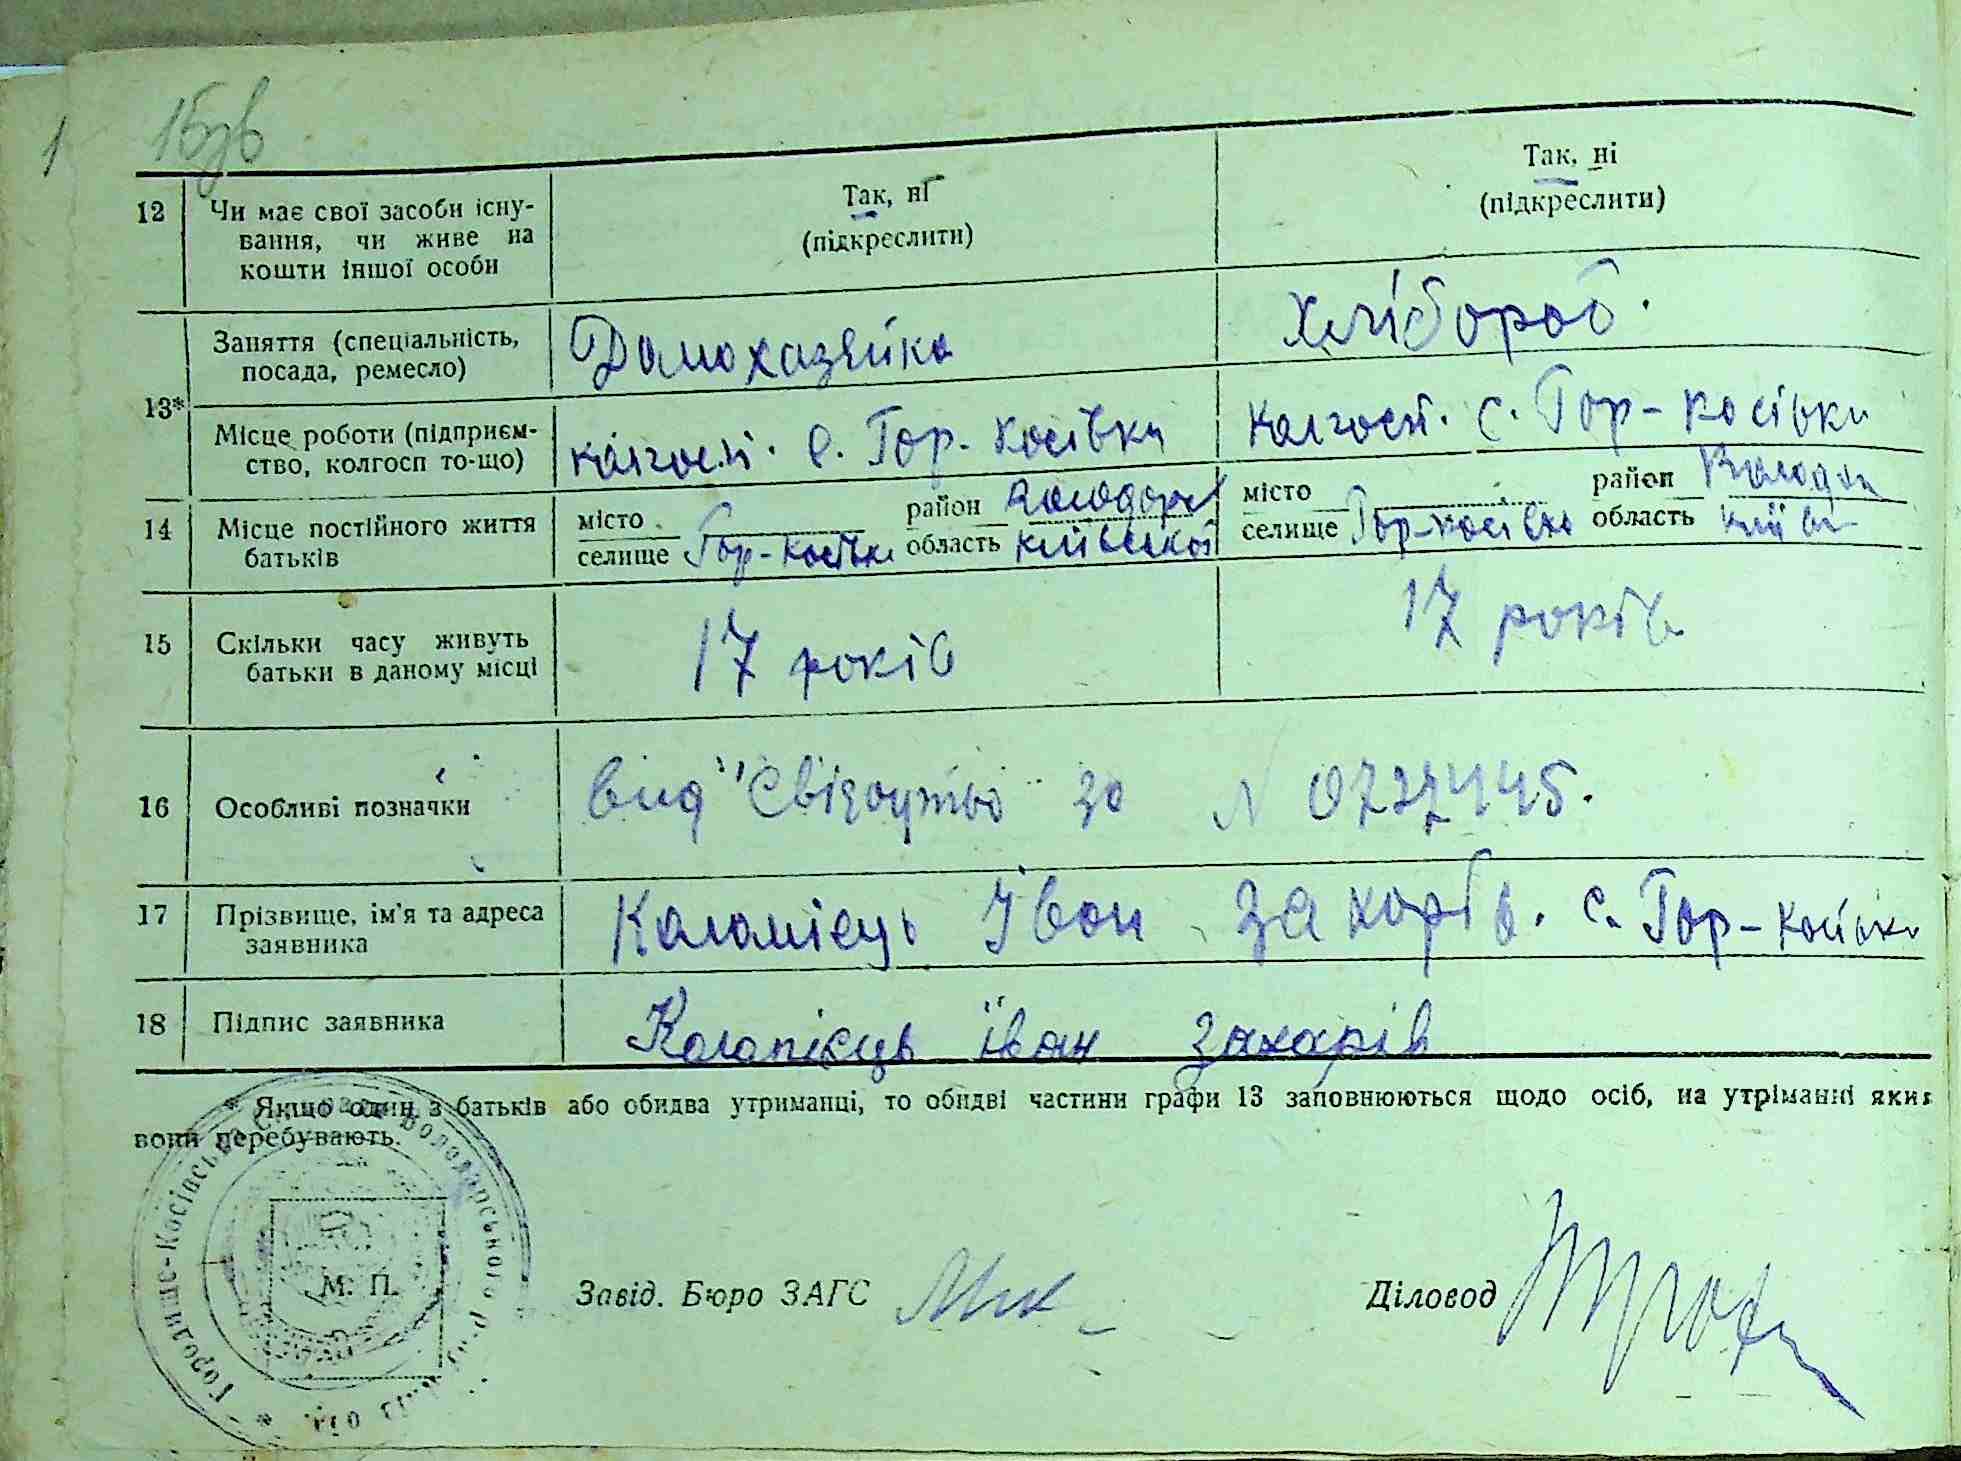 1
12 Чи має свої засоби існу-
вання, чи живе на
кошти іншої особи
Так, ні
(підкреслити)
Так, ні
(підкреслити)
13* Заняття (спеціальність,
посада, ремесло)
Домохазяйка
Хлібороб.
Місце роботи (підприєм-
ство, колгосп то-що)
колгосп. с. Гор. Косівки
Колгосп. с. Гор-Косівки
14 Місце постійного життя
батьків
місто район Володарс
селище Гор-Косівки область Київської
місто район Володар
селище Гор-Косівка область Київ
15 Скільки часу живуть
батьки в даному місці
17 років
17 років
16 Особливі позначки
Вид "Свідоцтво" за N 0727445.
17 Прізвище, ім'я та адреса
заявника
Коломієць Іван Захарів. с. Гор-Косівки
18 Підпис заявника
Коломієць Іван Захарів
* Якщо один з батьків або обидва утриманці, то обидві частини графи 13 заповнюються щодо осіб, на утріманні яких
вони перебувають.
Городище-Косівська Володарського р-ну
М. П.
Завід. Бюро ЗАГС
Діловод